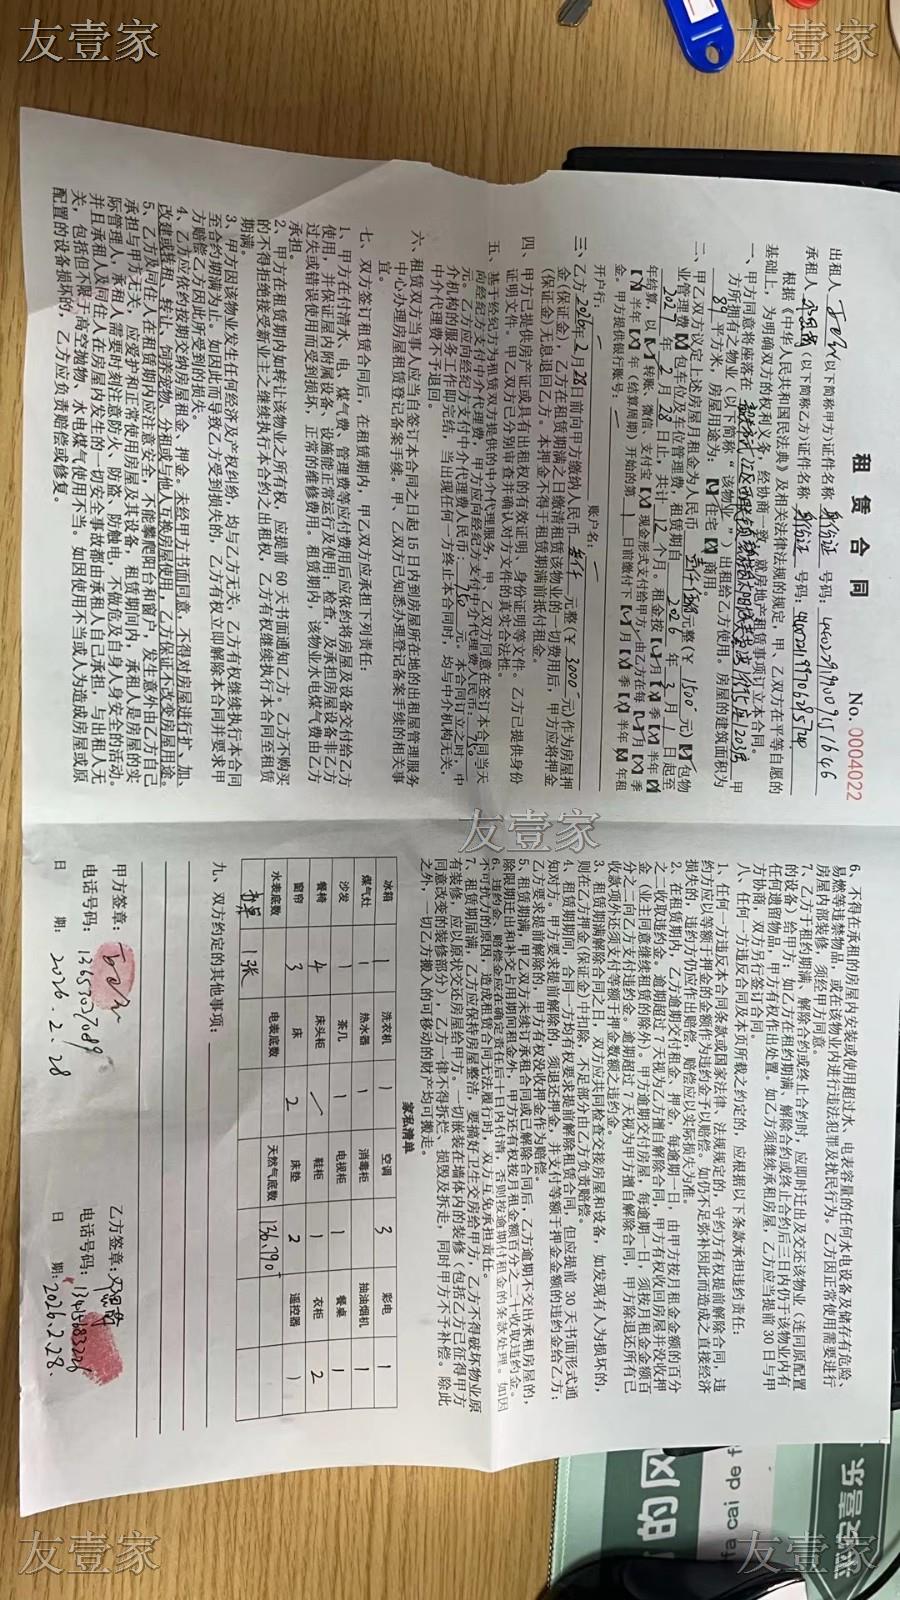 友壹家
友壹家
租赁合同
No. 0004022
出租人 (以下简称甲方)证件名称 身份证 号码:
承租人 (以下简称乙方)证件名称 身份证 号码:
根据《中华人民共和国民法典》及相关法律法规的规定,甲、乙双方在平等自愿的
基础上,为明确双方的权利义务,经协商一致,就房地产租赁事项订立本合同。
一、甲方同意将座落在 甲
方所拥有之物业(以下简称“该物业”)出租给乙方使用。房屋的建筑面积为
89 平方米,房屋用途为:住宅 商用。
二、甲乙双方议定上述房屋月租金为人民币 元整(¥ 1500 元)包物
业管理费 包车位及车位管理费,租赁期自 2026 年 3 月 1 日起至
2027 年 2 月 28 日止,共计 12 个月。租金按 月 季 半年 年
年结算,以 转账、微信、支付宝 现金形式支付给甲方,由乙方在每 月 季
半年 年(结算周期)开始的第 1 日前缴付下 月 季 半年 年租
金。甲方提供银行账号:
开户行: 账户名:
三、乙方 2026 年 2 月 28 日前向甲方缴纳人民币 叁仟 元整(¥ 3000 元)作为房屋押
金(保证金),乙方在租赁期满之日缴清租赁该物业的一切费用后,甲方应将押金
(保证金)无息退回乙方。本押金不得于租赁期满前抵付租金。
四、甲方已提供房产证或具有出租权的有效证明、身份证明等文件。乙方已提供身份
证明文件。甲乙双方已分别审查并确认对方文件的真实合法性。
五、基于经纪方为租赁双方提供的中介代理服务,甲、乙双方同意在签订本合同当天
向经纪方支付中介代理费,甲方应向经纪方支付中介代理费人民币: 750
元。乙方应向经纪方支付中介代理费人民币: 750 元。本合同订立之时,中
介机构的服务工作即完结,当出现任何一方终止本合同时,均与中介机构无关,
中介代理费不予退回。
六、租赁双方当事人应当自签订本合同之日起 15 日内到房屋所在地的出租屋管理服务
中心办理房屋租赁登记备案手续。甲、乙双方已知悉办理登记备案手续的相关事
宜。
七、双方签订租赁合同后,在租赁期内,甲乙双方应承担下列责任:
1、甲方在付清水、电、煤气费、管理费等应付费用后应依约将房屋及设备交付给乙方
使用,并保证屋内附属设备、设施能正常运行及使用;检查、及承担房屋设备非乙方
过失或错误使用而受到损坏,正常的维修费用。租赁期内,该物业水电煤气费由乙方
承担。
2、甲方在租赁期内如转让该物业之所有权,应提前 60 天书面通知乙方。乙方不购买
的不得拒绝接受新业主之继续执行本合约之出租权,乙方有权继续执行本合同至租赁
期满。
3、甲方因该物业发生任何经济及产权纠纷,均与乙方无关,乙方有权继续执行本合同
至合约期满为止。如因此而导致乙方受到损失的,乙方有权立即解除本合同并要求甲
方赔偿乙方因此所受到的损失。
4、乙方应依约按期交纳房屋租金、押金。未经甲方书面同意,不得对房屋进行扩、加、
改建或转租、转让、饲养宠物、分租或与他人互换房屋使用,乙方保证不改变房屋用途。
5、乙方及同住人在租赁期内应注意安全,不能攀爬阳台和窗户,发生意外由乙方自己
承担与甲方无关,应爱护和正常使用房屋及其设备,租赁期间内,承租人是房屋的实
际管理人,承租人需要时刻注意防火、防盗、防触电,不做危及自身人身安全的活动。
并且承租人及同住人在房屋内发生的一切安全事故都由承租人自己承担,与出租人无
关,包括但不限于高空抛物、水电煤气使用不当。如因使用不当或人为造成房屋或原
配置的设备损坏的,乙方应负责赔偿或修复。
友壹家
6、不得在承租的房屋内安装或使用超过水、电表容量的任何水电设备及储存有危险、
易燃等违禁物品,或在该物业内进行违法犯罪及扰民行为。乙方因正常使用需要进行
房屋内部装修,须经甲方同意。
7、乙方于租约期满、解除合约或终止合约时,应即时迁出及交还该物业(连同原配置
的设备)给甲方;如乙方在租约期满、解除合约或终止合约后三日内仍于该物业内有
任何遗留物品,甲方有权作出处置。如乙方须继续承租房屋,乙方应当提前 30 日与甲
方协商,双方另行签订合同。
八、任何一方违反合同及本页所载之约定的,应根据以下条款承担违约责任:
1、任何一方违反本合同条款或国家法律、法规规定的,守约方有权提前解除合同,违
约方应以等额于押金的金额作为违约金予以赔偿。如仍不足弥补因此而造成之直接经济
损失的,违约方仍应作出赔偿,赔偿应以实际损失为准。
2、在租赁期内,乙方逾期交付租金、押金,每逾期一日,由甲方按月租金金额的百分
之二收取违约金,逾期超过 7 天视为乙方擅自解除合同,甲方有权收回房屋并没收押
金(业主同意继续租赁的除外)。甲方逾期交付房屋,每逾期一日,须按月租金金额百
分之二向乙方支付违约金。逾期超过 7 天视为甲方擅自解除合同,甲方除退还所有已
收款项外还须支付等额于押金数额之违约金。
3、租赁期满解除合同之日,双方应共同检查交接房屋和设备,如发现有人为损坏的,
则在乙方押金(保证金)中扣除,不足部分由乙方负责赔偿。
4、租赁期期间,合同一方均有权要求提前解除租赁合同,但应提前 30 天书面形式通
知对方。甲方要求提前解除的,须退还押金,并支付等额于押金金额的违约金给乙方;
乙方要求提前解除的,甲方有权没收押金作为赔偿。
5、租赁期满,甲乙双方未续订承租合同或已解除合同后,乙方逾期不交出承租房屋的,
除限期迁出和补交占用期间租金外,甲方还有权按月租金额百分之二十收取违约金。
6、违约金、赔偿金应在确定责任后十日内付清,否则按逾期付租金的条款处理。如因
不可抗力的原因,造成租赁合同无法履行时,双方互免承担责任。
7、租赁期届满,乙方应保持房屋整洁,要搞好卫生交房给甲方,乙方不得破坏物业原
有装修,应以原状交还房屋给甲方。一切嵌装在墙体内的装修(包括乙方已征得甲方
同意改变的装修部分),乙方一律不得拆烂、损毁及拆走,同时甲方不予补偿。除此
之外,一切乙方搬入的可移动的财产均可搬走。
家私清单
冰箱 1 洗衣机 1 空调 3 彩电 1
煤气灶 1 热水器 1 消毒柜 1 抽油烟机 1
沙发 1 茶几 1 电视柜 1 餐桌 1
餐椅 4 床头柜 鞋柜 1 衣柜 2
窗帘 3 床 2 床垫 2 遥控器 1
水表底数 电表底数 天然气底数
1张
九、双方约定的其他事项:
甲方签章:
电话号码:
日期: 2026.2.28
乙方签章:
电话号码:
日期: 2026.2.28.
的风
fa cai de f
平安喜乐
友壹家
友壹家